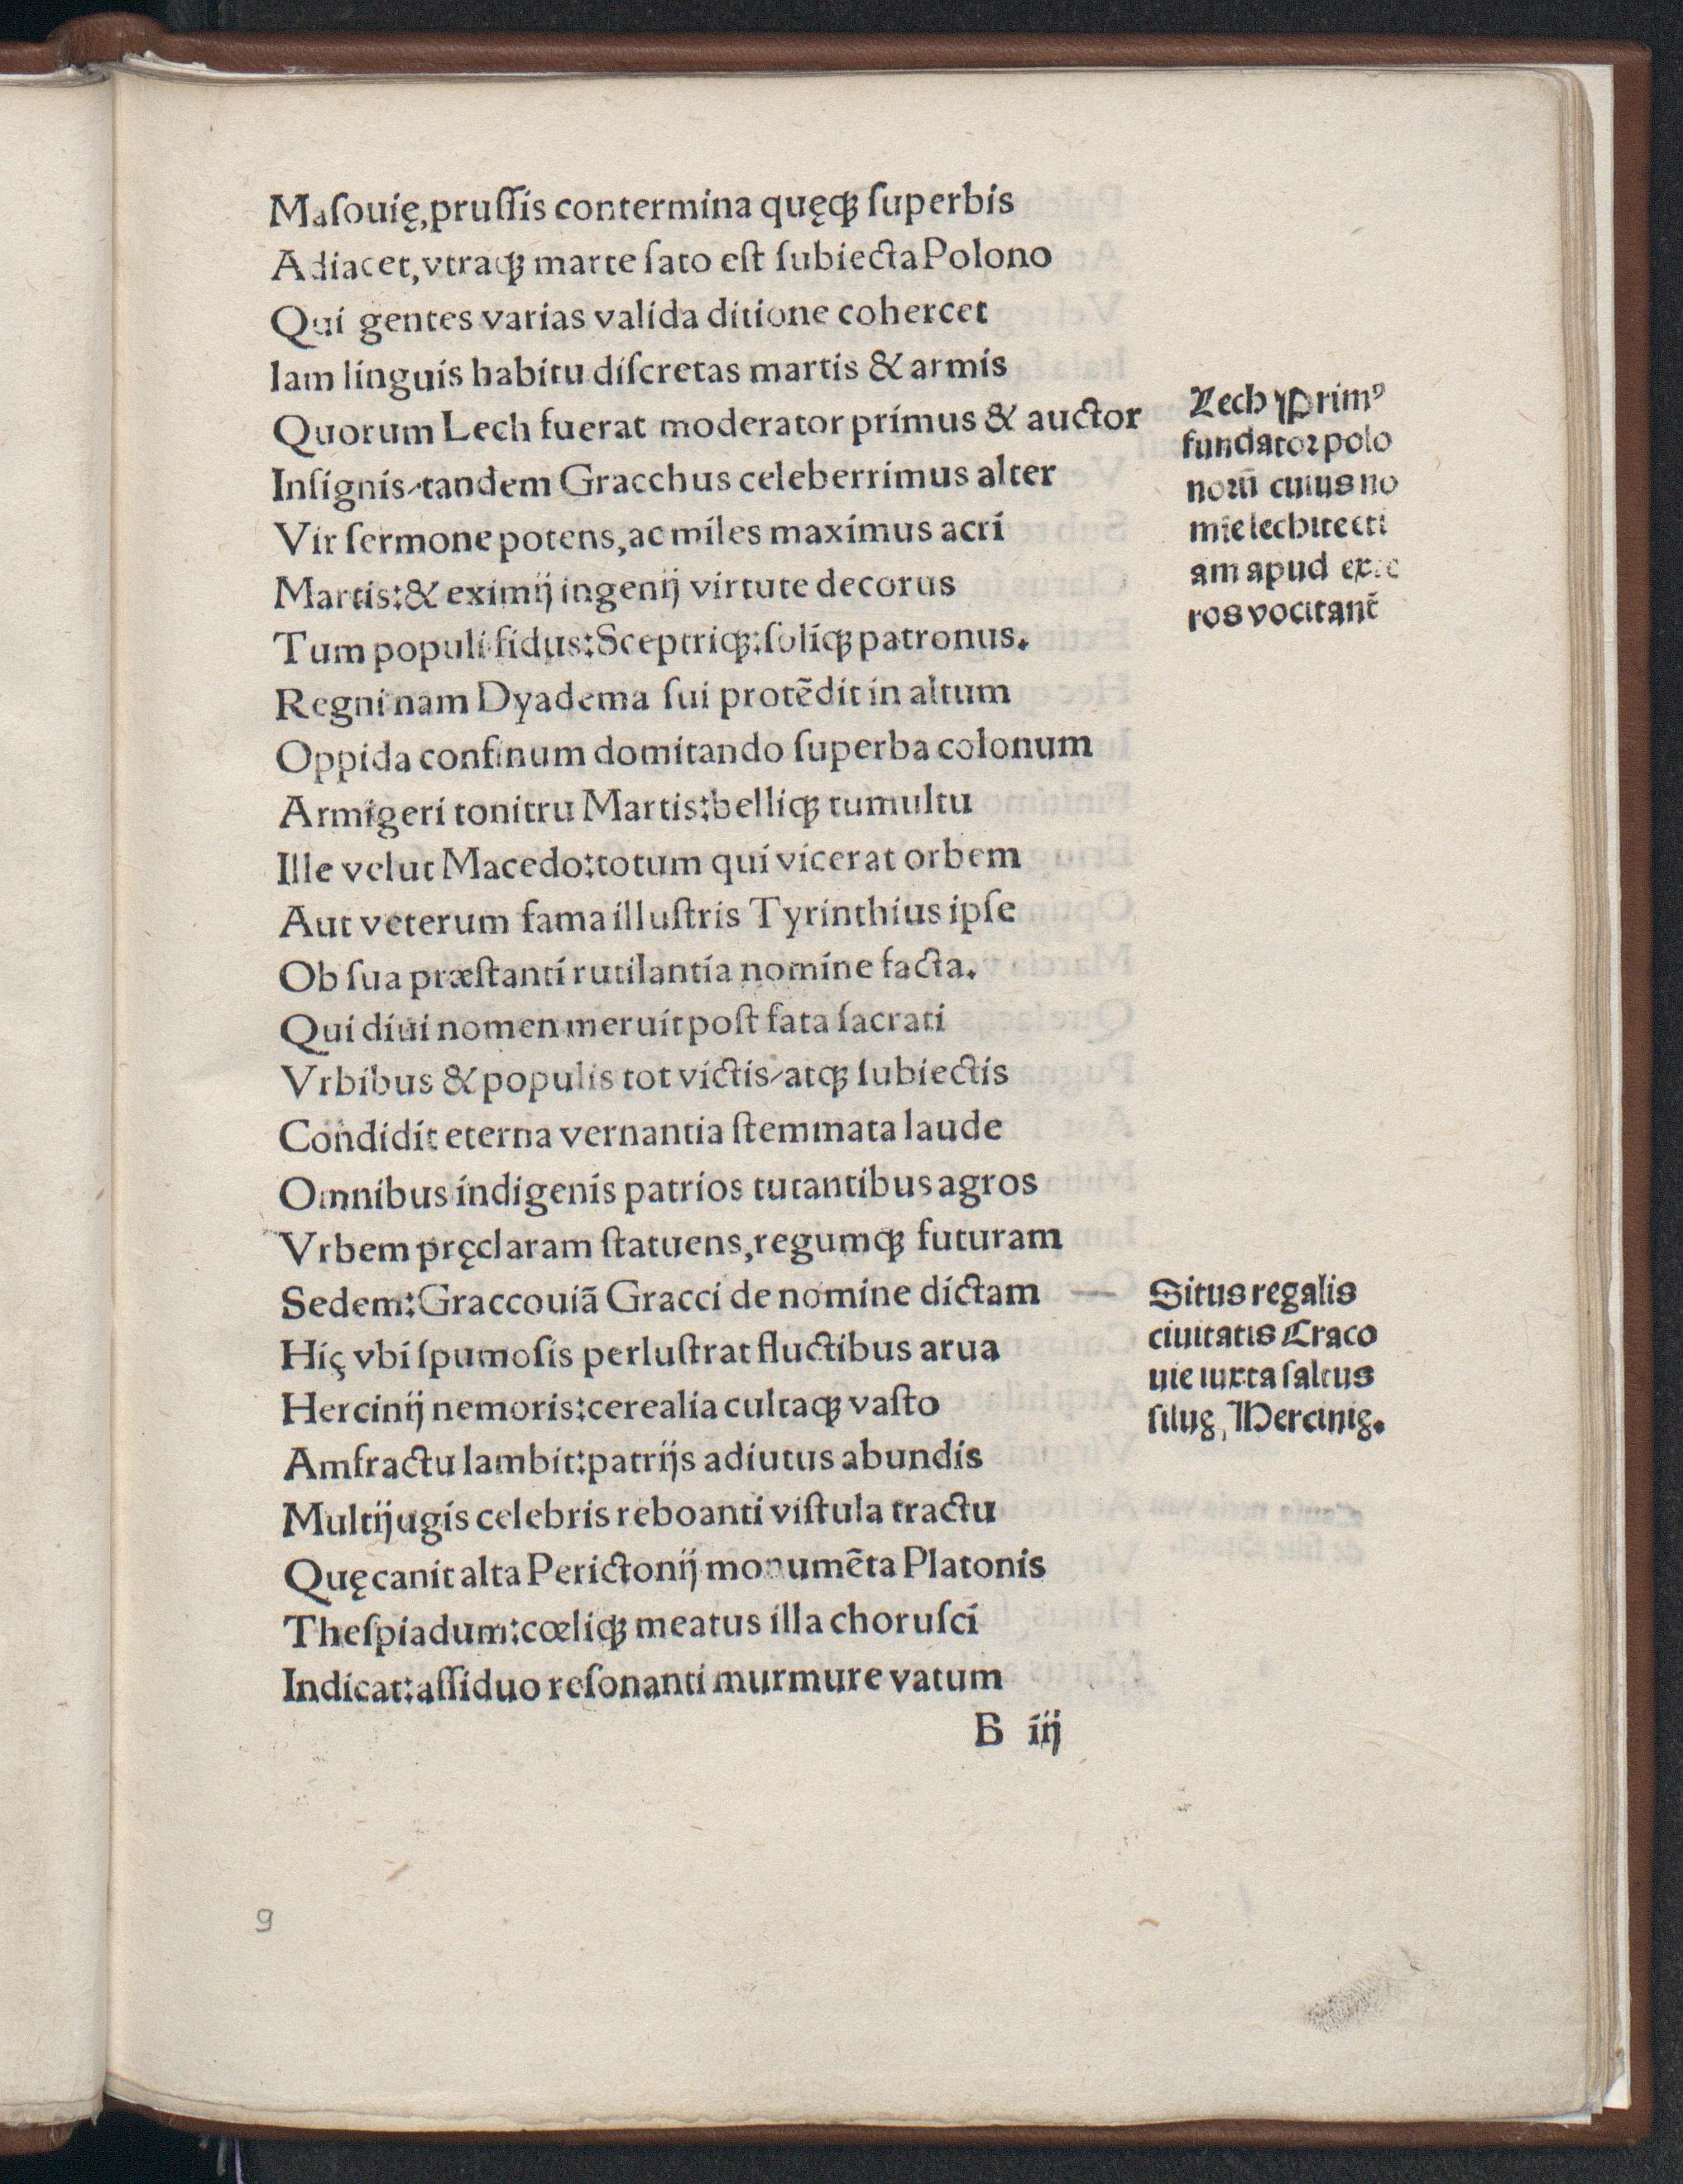 Maſouię,pruſſis contermina quęqꝫ ſuperbis
Adiacet,vtraqꝫ marte ſato eſt ſubiecta Polono
Qui gentes varias valida ditione cohercet
Iam linguis habitu diſcretas martis & armis
Quorum Lech fuerat moderator primus & auctor
Inſignis/tandem Gracchus celeberrimus alter
Vir ſermone potens,ac miles maximus acri
Martis:& eximij ingenij virtute decorus
Tum populi fidus:Sceptriqꝫ:ſoliqꝫ patronus.
Regni nam Dyadema ſui protēdit in altum
Oppida confinum domitando ſuperba colonum
Armigeri tonitru Martis:belliqꝫ tumultu
Ille velut Macedo:totum qui vicerat orbem
Aut veterum fama illuſtris Tyrinthius ipſe
Ob ſua præſtanti rutilantia nomine facta.
Qui diui nomen meruit poſt fata ſacrati
Vrbibus & populis tot victis/atqꝫ ſubiectis
Condidit eterna vernantia ſtemmata laude
Omnibus indigenis patrios tutantibus agros
Vrbem pręclaram ſtatuens,regumqꝫ futuram
Sedem:Graccouiā Gracci de nomine dictam
Hiç vbi ſpumoſis perluſtrat fluctibus arua
Hercinij nemoris:cerealia cultaqꝫ vaſto
Amfractu lambit:patrijs adiutus abundis
Multijugis celebris reboanti viſtula tractu
Quę canit alta Perictonij monumēta Platonis
Theſpiadum:cœliqꝫ meatus illa choruſci
Indicat:aſſiduo reſonanti murmure vatum
B iij
Lech Primꝰ
fundator polo
norū cuius no
mīe lechitecti
am apud exte
ros vocitant̄
Situs regalis
ciuitatis Craco
uie iuxta ſaltus
ſiluę, Hercinię.
9